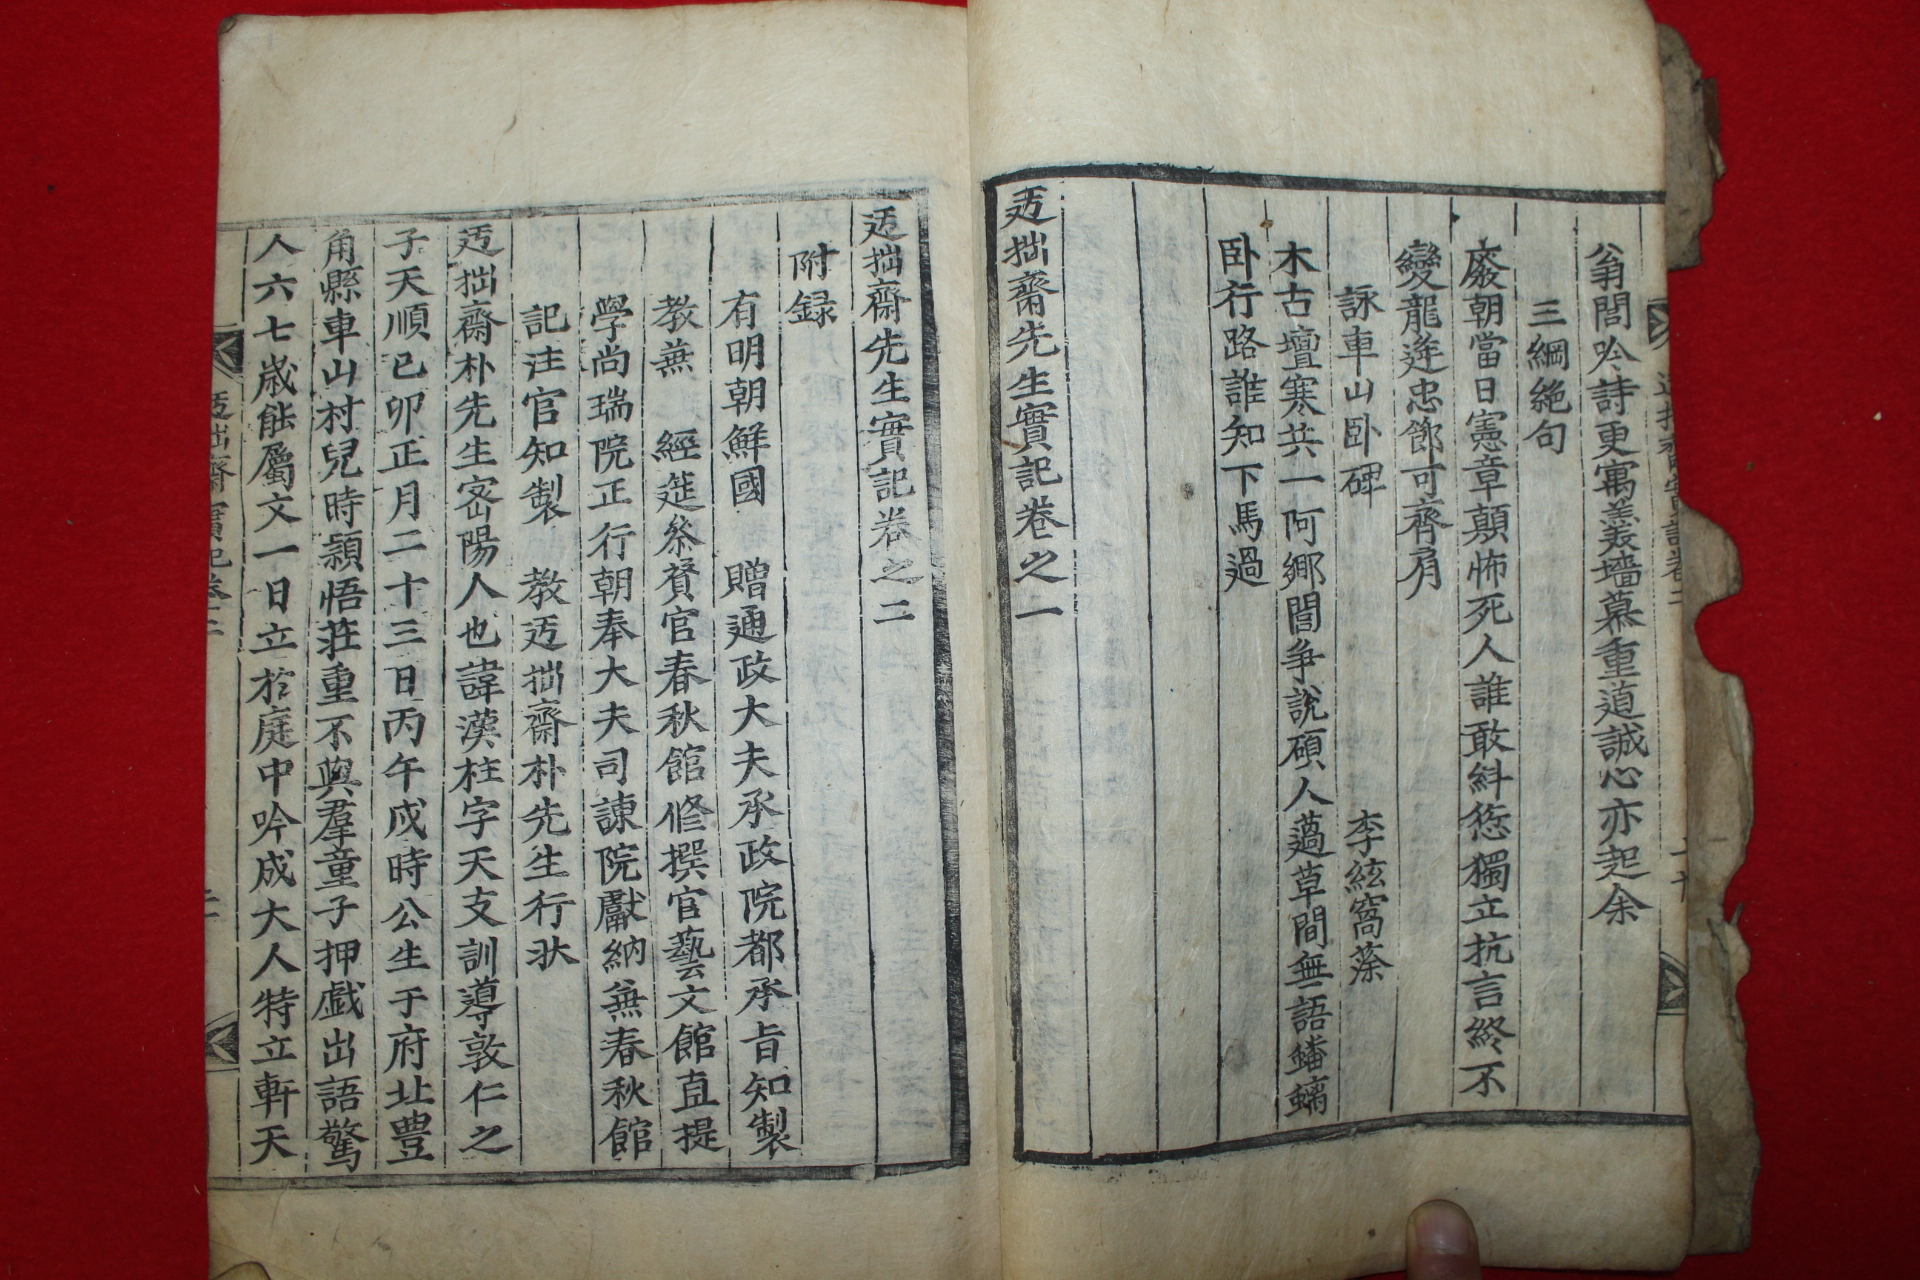 翁閭吟詩更寓羡墻慕重道誠心亦起余
三綱絶句
廢朝當日憲章顛怖死人誰敢糾愆獨立抗言終不
變龍逄忠節可齊肩
詠車山卧碑 李絃窩
木古壇寒共一阿鄉閭爭說碩人薖草間無語蟠螭
卧行路誰知下馬過
迃拙齋先生實記卷之一
迃拙齋先生實記卷之二
附録
有明朝鮮國 贈通政大夫承政院都承旨知製
教兼 經筵叅賛官春秋館修撰官藝文館直提
學尚瑞院正行朝奉大夫司諫院獻納兼春秋館
記注官知製 教迃拙齋朴先生行狀
迃拙齋朴先生密陽人也諱漢柱字天支訓導敦仁之
子天順己卯正月二十三日丙午戌時公生于府北豊
角縣車山村兒時穎悟莊重不與羣童子押戱出語驚
人六七歲能屬文一日立於庭中吟成大人特立軒天
迃拙齋實記卷二
二